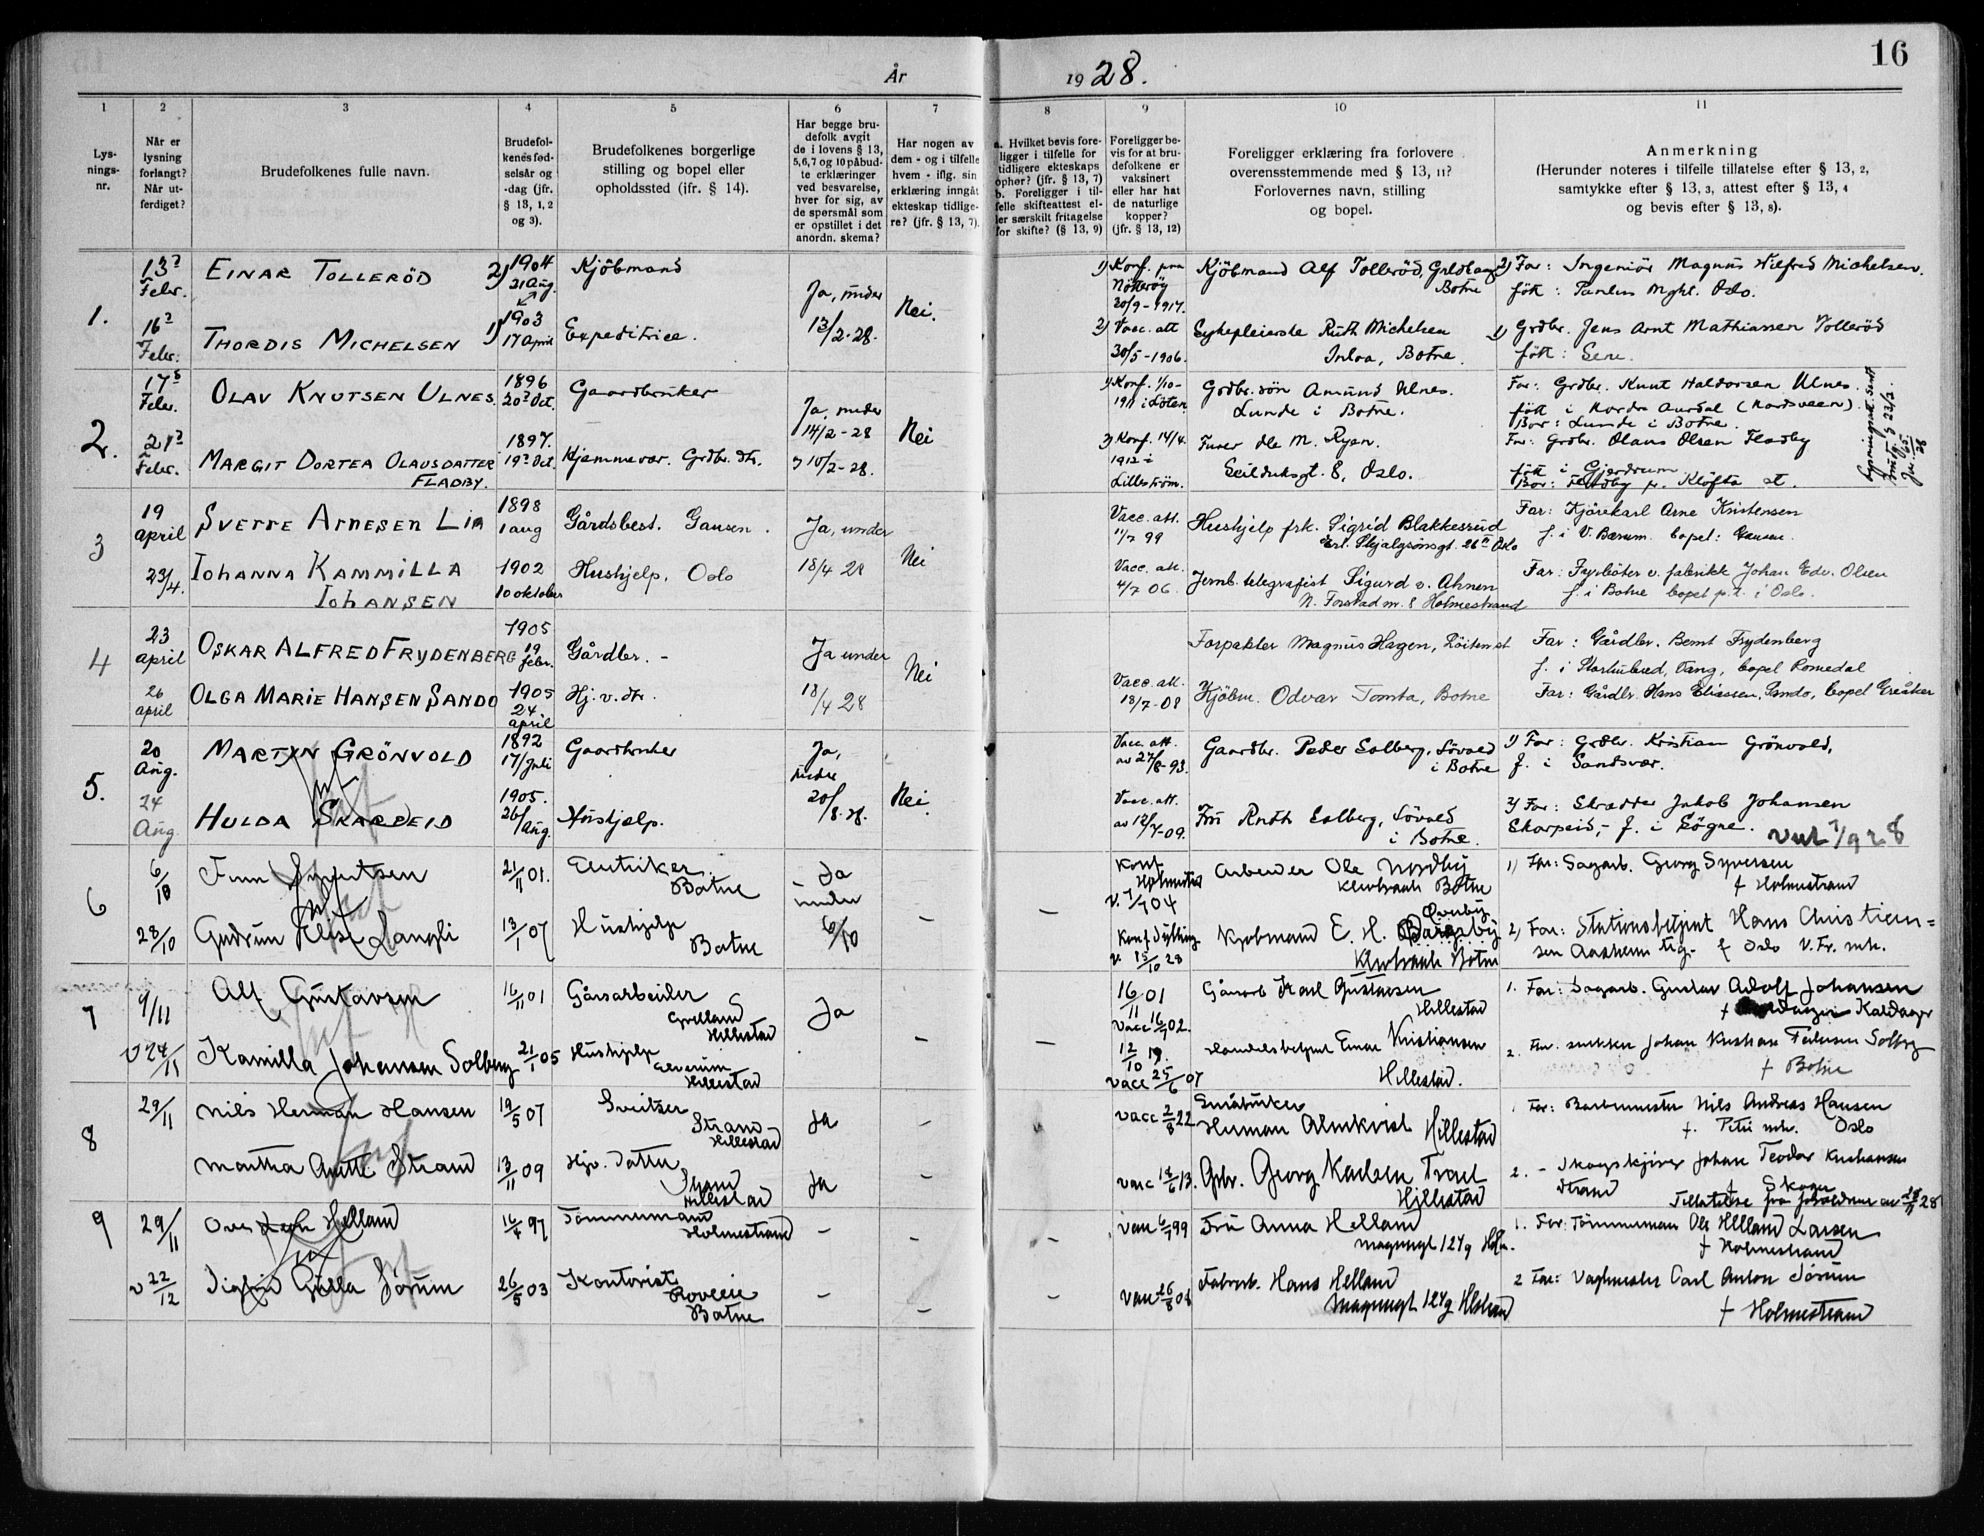 16
År 1928.
1 2 3 4 5 6 7 8 9 10 11
Lys-
nings-
nr.
Når er
lysning
forlangt?
Når ut-
ferdiget?
Brudefolkenes fulle navn.
Brudefol-
kenes fød-
selsår og
-dag (jfr.
§ 13, 1, 2
og 3).
Brudefolkenes borgerlige
stilling og bopel eller
opholdssted (jfr. § 14).
Har begge bru-
defolk avgit
de i lovens § 13,
5, 6, 7 og 10 påbud-
te erklæringer
ved besvarelse,
hver for sig, av
de spørsmål som
er opstillet i det
anordn. skema?
Har nogen av
dem - og i tilfelle
hvem - iflg. sin
erklæring inngåt
ekteskap tidlige-
re? (jfr. § 13, 7).
a. Hvilket bevis fore-
ligger i tilfelle for
tidligere ekteskaps
ophør? (jfr. § 13, 7)
b. Foreligger i til-
felle skifteattest el-
ler særskilt fritagelse
for skifte? (§ 13, 9)
Foreligger be-
vis for at bru-
defolkene er
vaksinert
eller har hat
de naturlige
kopper?
(jfr. § 13, 12)
Foreligger erklæring fra forlovere
overensstemmende med § 13, 11?
Forlovernes navn, stilling
og bopel.
Anmerkning
(Herunder noteres i tilfelle tillatelse efter § 13, 2,
samtykke efter § 13, 3, attest efter § 13, 4
og bevis efter § 13, 8).
1.
13?
Febr.
EINAR TOLLERÖD
2) 1904
21 Aug.
Kjöbmand
Ja, under
13/2-28.
Nei.
1) Konf. paa
Nötteröy
30/9-1917.
Kjöbmand Alf Tolleröd,
Botne
2) Far: Ingeniör Magnus Wilfred Michelsen.
föt: Oslo.
16?
Febr.
THORDIS MICHELSEN
1) 1903
17 April
Expeditrice.
2) Vacc. att
30/5-1906.
Sykepleierske Ruth Michelsen
Botne.
1) Grdbr. Jens Arnt Mathiassen Tolleröd
föt: Sem.
2.
17?
Febr.
OLAV KNUTSEN ULNES.
1896
20? Oct.
Gaardbruker
Ja, under
14/2-28
Nei
1) Konf. 1/10-
1911 i Löten
Grdbr. sön Amund Ulnes.
Lunde i Botne.
Far: Grdbr. Knut Haldorsen Ulnes.
föt i Nordre Aurdal (Nordsveen).
Bor: Lunde i Botne.
21?
Febr.
MARGIT DORTEA OLAUSDATTER
FLADBY.
1897.
19? Oct.
Hjemmevær. Grdbr. dtr.
10/2-28.
2) Konf. 14/4.
1912 i
Lilleström.
Fruer Ole M. Ryen.
Seilduksgt. 8, Oslo.
Far: Grdbr. Olaus Olsen Fladby
föt i Gjerdrum
Bor: Fladby pr. Klöfta st.
3
19
april
SVERRE ARNESEN LIA
1898
1 aug
Gårdsbest. Gausen.
Ja, under
18/4 28
Nei
Vacc. att.
11/7 99
Hushjelp frk. Sigrid Blakkesrud
Erl. Skjalgsönsgt. 26 II Oslo
Far: Kjörekarl Arne Kristensen
f. i V. Bærum. bopel: Gausen.
23/4.
IOHANNA KAMMILLA
IOHANSEN
1902
10 oktober
Hushjelp, Oslo
Vacc. att.
4/7 06.
Jernb. telegrafist Sigurd v. Ahnen
Holmestrand
Far: Fyrböter v. fabrikk Johan Edv. Olsen
f. i Botne bopel p.t. i Oslo.
4
23
april
OSKAR ALFRED FRYDENBERG
1905
19
febr.
Gårdbr. -
Ja under
18/4 28
Nei
Forpakter Magnus Hagen, Löiten st
Far: Gårdbr. Bernt Frydenberg
f. i Storhubred, Vang, bopel Romedal
26
april
OLGA MARIE HANSEN SANDO
1905
24
april
Hj. v. dtr.
Vacc. att.
18/7-08
Kjöbm. Odvar Tomta, Botne
Far: Gårdbr. Hans Eliassen, Sando, bopel Greåker
5.
20
Aug.
MARTIN GRÖNVOLD
1892
17/Juli
Gaardbruker
Ja,
under
20/8.28.
Nei.
Vacc. att.
av 27/8-93.
Gaardbr. Peder Solberg, Lövald
i Botne
1) Far: Grdbr. Kristian Grönvold,
f. i Sandsvær.
24
Aug
HULDA SKARPEID
1905.
26/Aug.
Hushjelp.
Vacc. att.
av 12/7-09.
Fru Ruth Solberg, Lövald
i Botne.
2) Far: Skredder Jakob Johansen
Skarpeid, - f. i Sögne.
6
6/10
Finn Syvertsen
21/11 01.
Botne
Ja
under
6/10
-
-
Konf
Holmestr
Arbeider Ole Nordby
Botne
1) Far: Sagarb. Georg Syversen
f Holmestrand
28/10
Gudrun Elise Langli
13/1 07
Hushjelp
Botne
15/10 23
Kjøbmand E. H.
Botne
2) Far: Stationsbetjent Hans Christian=
sen f Oslo V. Fr. mh.
7
9/11
Alf Gustavsen
16/11 01
Gårsarbeider
Grelland
Hillestad
Ja
-
-
16/11 01
Vacc 16/7 02.
Gårsarb Karl Gustavsen
Hillestad
1. Far: Sagarb. Gustav Adolf Johansen
v 24/11
Kamilla Johansen Solberg
21/1 05
Hushjelp
Hillestad
12/10 19.
Vacc 25/6 07
Handelsbetjent Einar Kristiansen
Hillestad.
2. Far. Johan Kristian Solberg
f Botne
8
29/11
Nils Herman Hansen
19/5 07
Sveitser
Strand
Hillestad
Ja
-
-
Vacc 2/8 22
Småbruker
Herman Almkvist Hillestad
Far: Barbermester Nils Andreas Hansen
f. Petri mh. Oslo
Martha Anette Strand
13/11 09
Hjv. datter
Strand
Hillestad
Ja
-
Vacc 18/6 13.
Gbr. Georg Karlsen
Hillestad
2. - Johan Teodor Kristiansen
Strand f Skoger
9
29/11
Ove Helland
16/4 97
Tømmermand
Holmestrand
-
-
-
Vacc 6/7 99
Fru Anna Helland
1. Far: Tømmermann Ole Helland Larsen
f Holmestrand
v 22/12
Sigfrid Gulla Sörum
26/5 03
Kontorist
Botne
-
-
-
Vacc 26/8 08
Fabrarb. Hans Helland
2 Far: Vagtmester Carl Anton Sörum
f Holmestrand